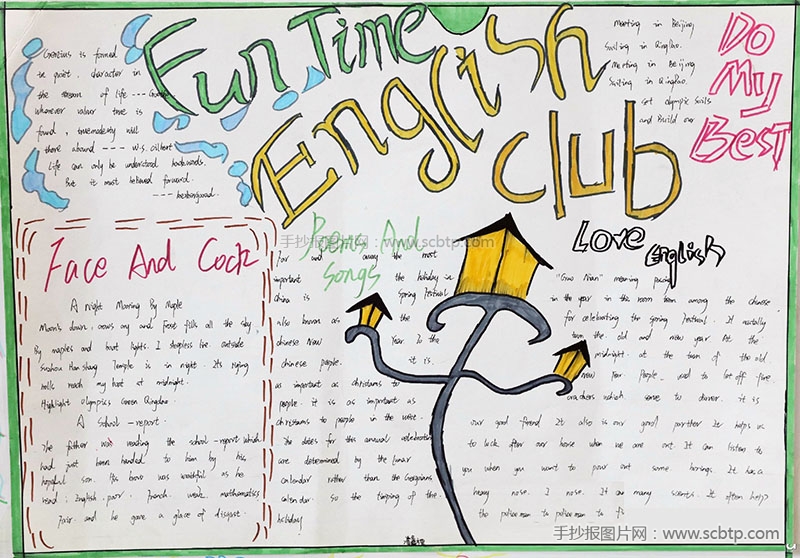 Fun Time
English
club
Do
My
Best
Genius is formed
in quiet, character in
the stream of life ---
whenever valour true is
found, true modesty will
there abound --- W.S. Gilbert
Life can only be understood backwards.
But it must belived forward.
Meeting in Beijing
Sailing in QingDao.
Meeting in Beijing
Sailing in QingDao.
Get olympic sails
and Build our
手抄报图片网:www.scbtp.com
Face And Cock
A night Mooring By Maple
Moon's down, crows cry and Frost fills all the sky,
By maples and boat lights, I sleepless lie. outside
Suzhou Han shang Temple is in night. Its
bells reach my boat at midnight.
Highlight Olympics Green Qingdao
A School -report.
The father was reading the school -report which
had just been handed to him by his
hopeful son. His brow was wrathful as he
read: English, poor. French, weak. mathematics
fair. and he gave a glace of disgust.
Poems And
Songs
Far and away the most
important the holiday in
china is Spring Festival
also known as the
chinese New Year. To the
chinese people. it is
as important as christmas to
people. it is as important as
christmas to people in the west.
The dates for this annual celebration
are determined by the lunar
calendar rather than the Georgians
calendar. so the timping of the
holiday
Love English
"Guo Nian" meaning
in the year in the room term among the chinese
for celebrating the spring festival. It
the old and new year At the
midnight. at the turn of the old
now Year. People. used to let off fire.
crackers which serve to
our good friend. It also is our good partner It helps us
to look after our house when we are out. It can listen to
you when you want to pour out some. It has a
nose. I nose. It can many scents. It often help?
the police man to police man to
手抄报图片网:www.scbtp.com